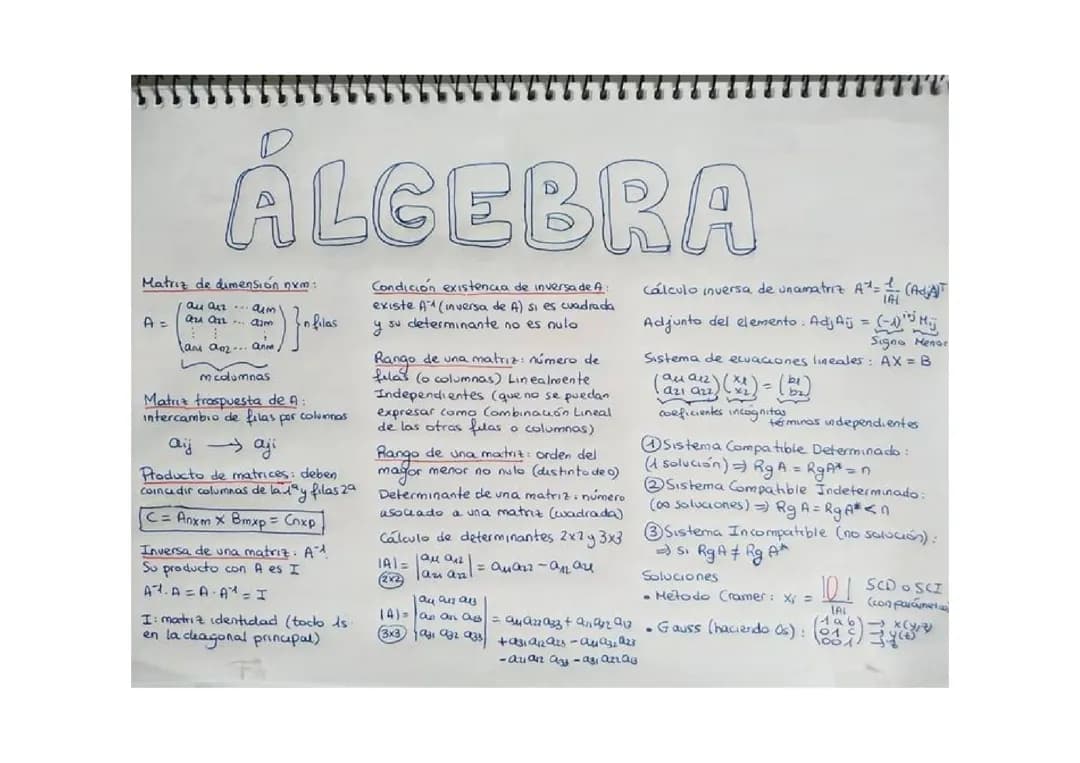 ÁLGEBRA
Matriz de dimensión nxm:
A = (a11 a12 ... a1m
a21 a22 ... a2m
⋮ ⋮ ⋮
an1 an2 ... anm) } n filas
m columnas
Matriz traspuesta de A:
intercambio de filas por columnas
aij → aji
Producto de matrices: deben
coincidir columnas de la 1ª y filas 2ª
C = Anxm x Bmxp = Cnxp
Inversa de una matriz: A⁻¹.
Su producto con A es I
A⁻¹·A = A·A⁻¹ = I
I: matriz identidad (todo 1s
en la diagonal principal)
Condición existencia de inversa de A:
existe A⁻¹ (inversa de A) si es cuadrada
y su determinante no es nulo
Rango de una matriz: número de
filas (o columnas) Linealmente
Independientes (que no se puedan
expresar como Combinación Lineal
de las otras filas o columnas)
Rango de una matriz: orden del
mayor menor no nulo (distinto de 0)
Determinante de una matriz: número
asociado a una matriz (cuadrada)
Cálculo de determinantes 2x2 y 3x3
|A| = |a11 a12
a21 a22| = a11a22 - a12a21
(2x2)
|A| = |a11 a12 a13
a21 a22 a23
a31 a32 a33|
(3x3)
Cálculo inversa de una matriz A⁻¹ = 1/|A| (AdjA)ᵀ
Adjunto del elemento: AdjAij = (-1)ⁱ⁺ʲ Mij
Signo Menor
Sistema de ecuaciones lineales: AX = B
(a11 a12
a21 a22) (x1
x2) = (b1
b2)
coeficientes incógnitas
términos independientes
① Sistema Compatible Determinado:
(1 solución) ⇒ RgA = RgA* = n
② Sistema Compatible Indeterminado:
(∞ soluciones) ⇒ RgA = RgA* < n
③ Sistema Incompatible (no solución):
⇒ si RgA ≠ RgA*
Soluciones
• Método Cramer: xi = |0|/|A| SCD o SCI
• Gauss (haciendo 0s): (1 a b
0 1 c
0 0 1) → x(y,z)
→ y(z)
→ z